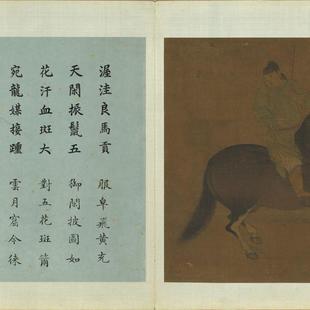 渥洼良馬貢
天閑振鬣五
花汗血斑大
宛龍媒接踵
服皁飛黃充
御閑披圖如
對五花斑籋
雲月窟今徠